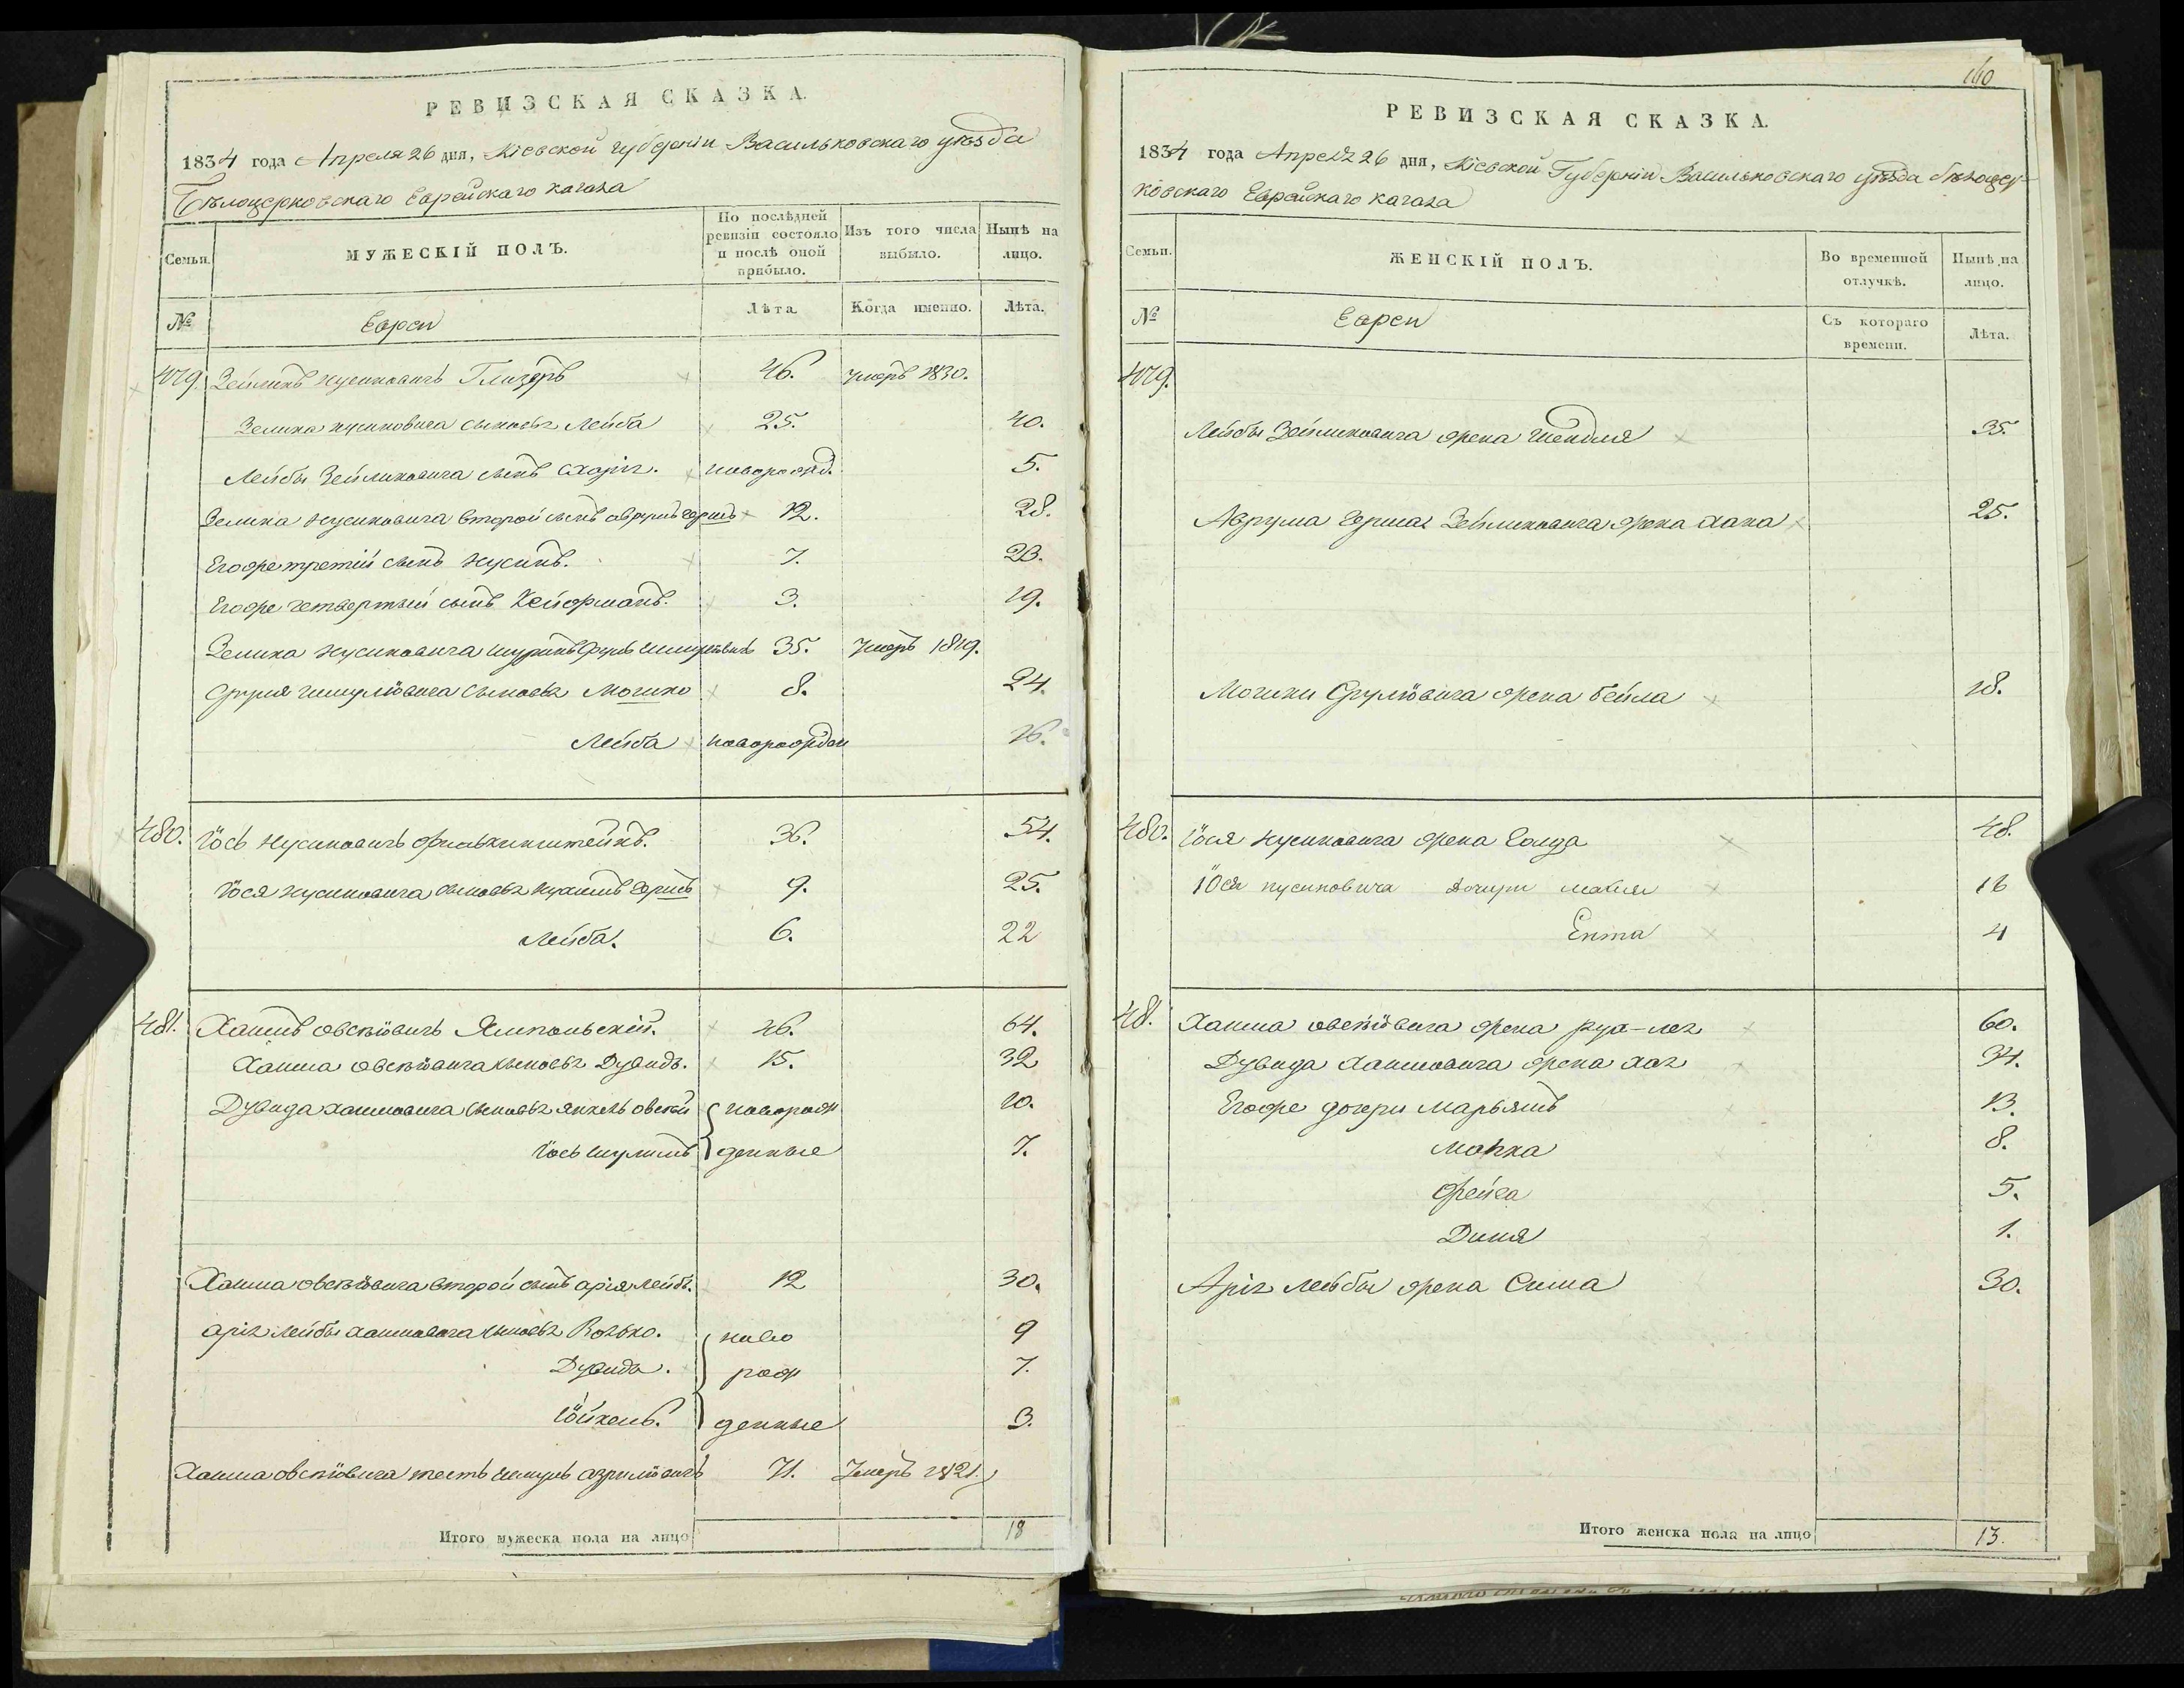 РЕВИЗСКАЯ СКАЗКА.
1834 года Апреля 26 дня, Кіевской губерніи Васильковскаго уѣзда
Бѣлоцерковскаго Еврейскаго кагала
Семьи.
МУЖЕСКІЙ ПОЛЪ.
По послѣдней ревизіи состояло и послѣ оной прибыло.
Изъ того числа выбыло.
Нынѣ на лицо.
№
Евреи
Лѣта
Когда именно.
Лѣта.
479. Зейликъ Нусиновичъ Глизеръ 46. Умеръ 1830.
Зелика Нусиновича сыновья Лейба 25. 40.
Лейбы Зейликовича сынъ новорожд. 5.
Зелика Нусиновича второй сынъ Аврумъ Гершъ 12. 28.
Егоже третий сынъ Нусинъ. 7. 23.
Егоже четвертый сынъ 3. 19.
Зелика Нусиновича шуринъ Сруль Шмулiовичъ 35. Умеръ 1819.
Сруля Шмулiовича сыновья Мошко 8. 24.
Лейба новорожден 16.
480. Iось Нусиновичъ 36. 54.
Iося Нусиновича сыновья Нухимъ Гершъ 9. 25.
Лейба. 6. 22
481. Хаимъ Овсѣiовичъ Ямпольскiй. 46. 64.
Хаима Овсѣiовича сыновья Дувидъ. 15. 32
Дувида Хаимовича сыновья Янкель Овсей новорож 10.
Iось Шулимъ денные 7.
Хаима Овсѣiовича второй сынъ Арiя Лейбъ. 12 30.
Арiя Лейбы Хаимовича сыновья Волько. ново 9
Дувидъ. рож 7.
денные 3.
Хаима Овсѣiовича тесть Шмуль Азрилiовичъ 71. Умеръ 1821.
Итого мужеска пола на лицо 18
160
РЕВИЗСКАЯ СКАЗКА.
1834 года Апреля 26 дня, Кіевской Губерніи Васильковскаго уѣзда бѣлоцер-
ковскаго Еврейскаго кагала
Семьи.
ЖЕНСКІЙ ПОЛЪ.
Во временной отлучкѣ.
Нынѣ на лицо.
№
Евреи
Съ котораго времени.
Лѣта.
479.
Лейбы Зейликовича жена Шендля 35.
Аврума Герша Зейликовича жена Хана 25.
Мошки Срулiовича жена Бейла 18.
480. Iося Нусиновича жена Голда 48.
Iося Нусиновича дочери 16
Ента 4
481. Хаима Овсѣiовича жена Рухля 60.
Дувида Хаимовича жена Хая 34.
Егоже дочери Марьямъ 13.
Малка 8.
Фейга 5.
Диня 1.
Арiя Лейбы жена Сима 30.
Итого женска пола на лицо 13.